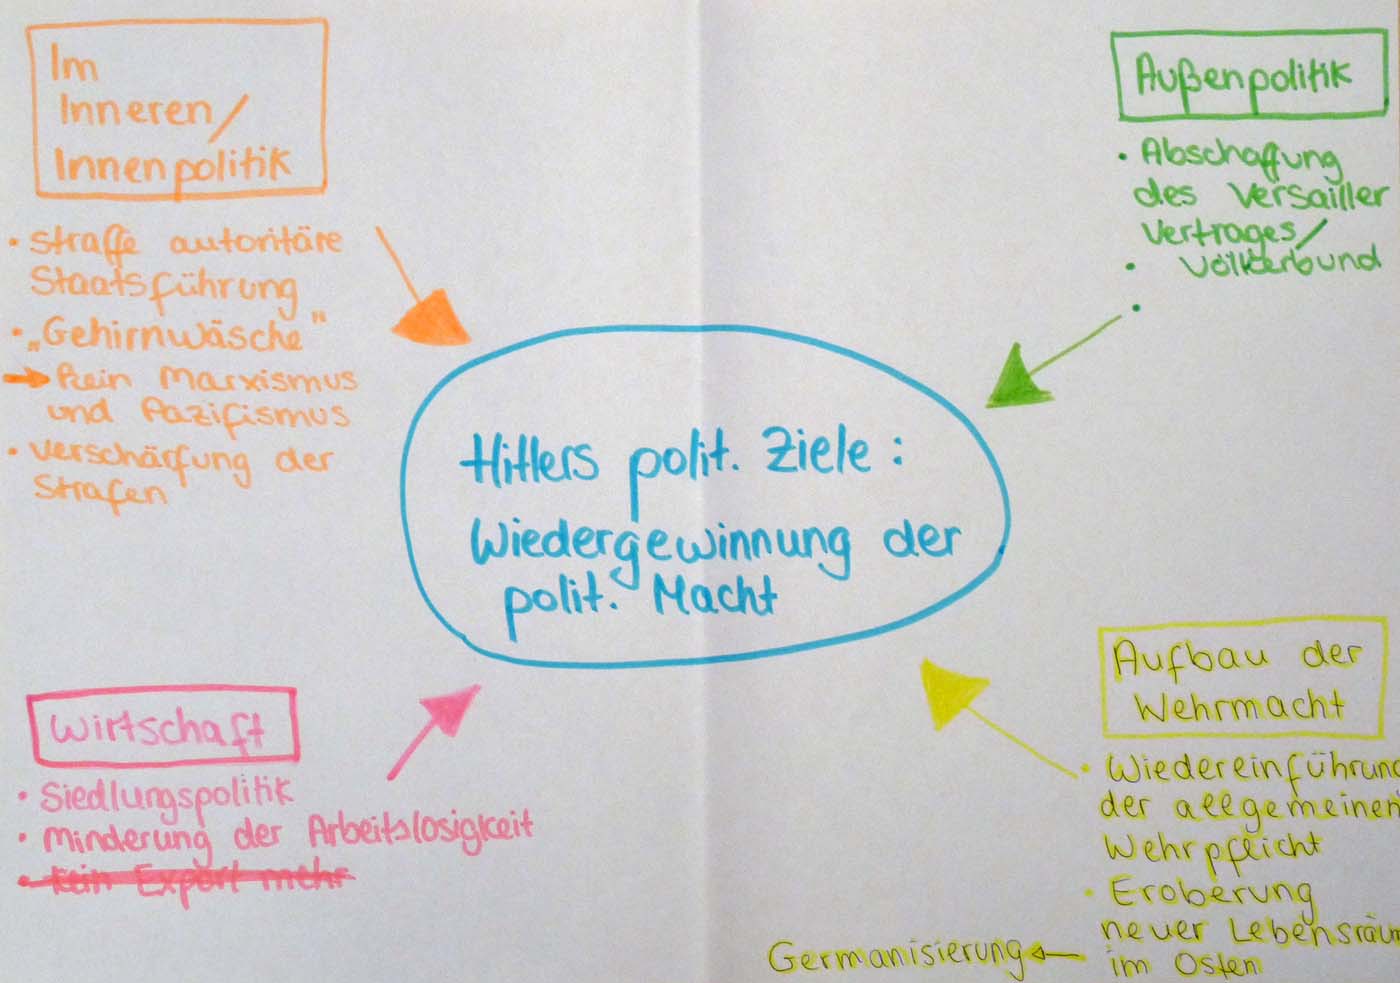 Im
Inneren/
Innenpolitik
• straffe autoritäre
Staatsführung
• „Gehirnwäsche"
→ kein Marxismus
und Pazifismus
• Verschärfung der
Strafen
Außenpolitik
• Abschaffung
des Versailler
Vertrages/
• Völkerbund
•
Hitlers polit. Ziele:
Wiedergewinnung der
polit. Macht
Wirtschaft
• Siedlungspolitik
• Minderung der Arbeitslosigkeit
• kein Export mehr
Aufbau der
Wehrmacht
• Wiedereinführung
der allgemeinen
Wehrpflicht
• Eroberung
neuer Lebensräum
im Osten
Germanisierung